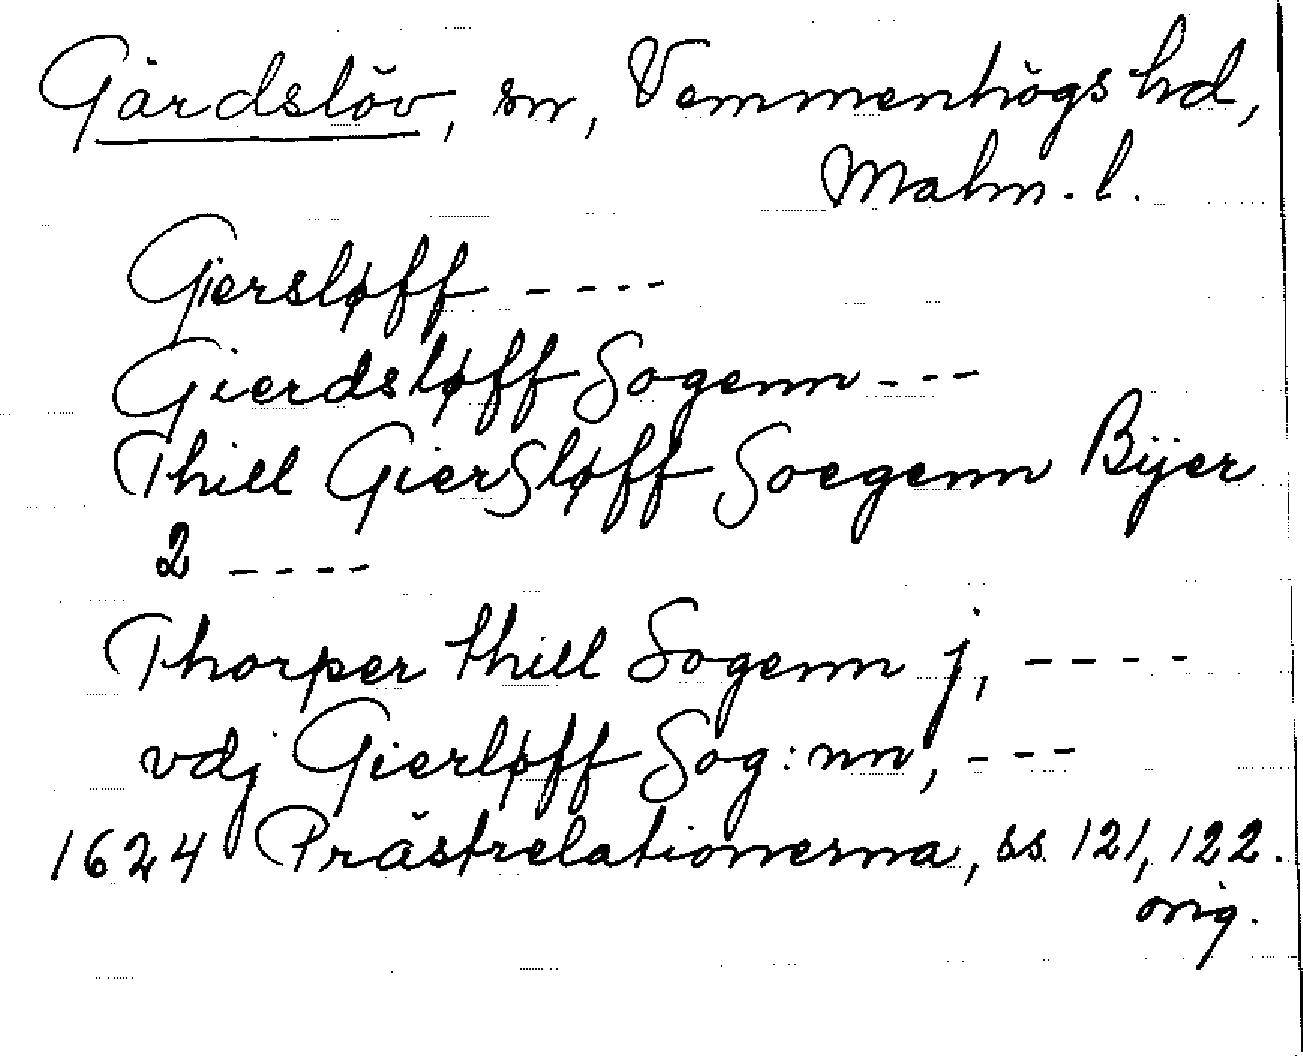 Gärdslöv, sn, Vemmenhögs hd,
Malm. l.
Giersløff ----
Gierdsløff Sogenn ---
Thill Giersløff Soegenn Bÿer
2 ----
Thorper thill Sogenn j, ----
vdj Gierløff Sog:nn, ---
1624 Prästrelationerna, ss. 121, 122.
orig.